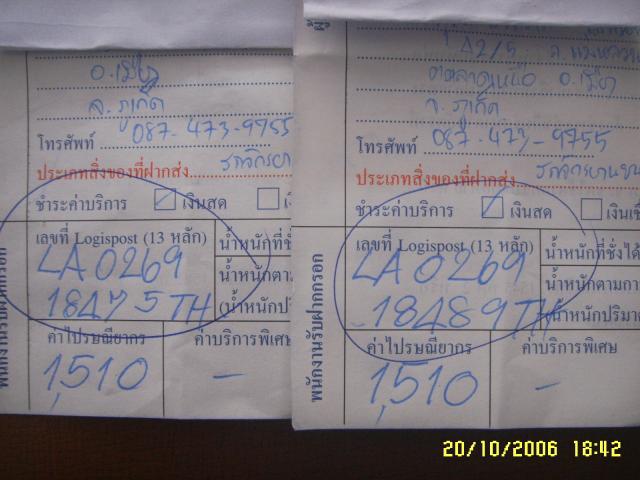 อ.เมือง
จ. ภูเก็ต
โทรศัพท์ 087-473-9755
ประเภทสิ่งของที่ฝากส่ง
ชำระค่าบริการ เงินสด
เลขที่ Logispost (13 หลัก) น้ำหนักที่ชั่
LA0269 น้ำหนักตาม
18475TH (น้ำหนักปริม
ค่าไปรษณียากร ค่าบริการพิเศษ
1,510 -
พนักงานรับฝากกรอก
42/5
อ.เมือง
จ. ภูเก็ต
โทรศัพท์ 087-473-9755
ประเภทสิ่งของที่ฝากส่ง
ชำระค่าบริการ เงินสด เงินเชื
เลขที่ Logispost (13 หลัก) น้ำหนักที่ชั่งได้
LA0269 น้ำหนักตามกา
18489TH น้ำหนักปริมา
ค่าไปรษณียากร ค่าบริการพิเศษ
1,510 -
พนักงานรับฝากกรอก
20/10/2006 18:42